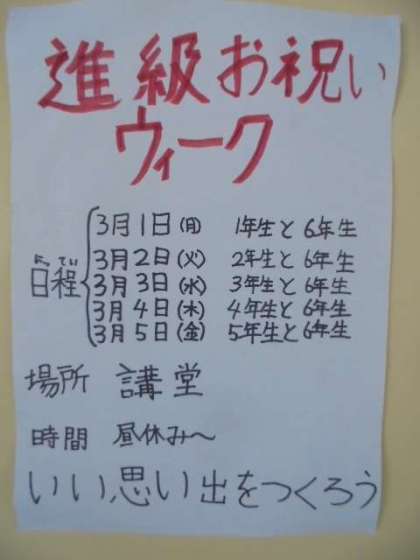 進級お祝い
ウィーク
にってい
日程
3月1日(月) 1年生と6年生
3月2日(火) 2年生と6年生
3月3日(水) 3年生と6年生
3月4日(木) 4年生と6年生
3月5日(金) 5年生と6年生
場所 講堂
時間 昼休み～
いい思い出をつくろう